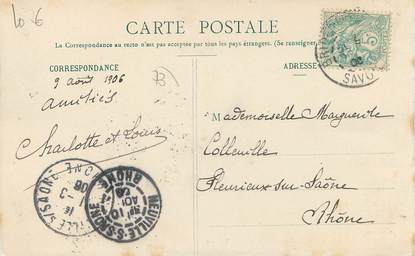 CARTE POSTALE
La Correspondance au recto n'est pas acceptée par tous les pays étrangers. (Se renseigner
CORRESPONDANCE
ADRESSE
9 août 1906
Amitiés
Charlotte et Louis
Mademoiselle Marguerite
Colleuille
Fleurieux-sur-Saône
Rhône
NEUVILLE-S-SAONE
RHONE
SAVOIE